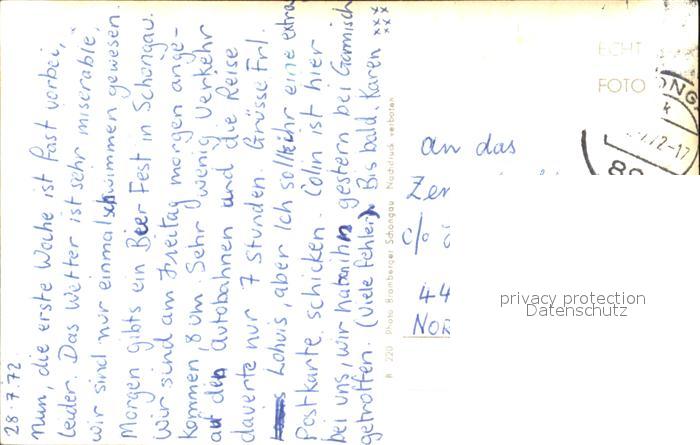 28.7.72
Nun, die erste Woche ist fast vorbei,
leider. Das Wetter ist sehr miserable,
wir sind nur einmal schwimmen gewesen.
Morgen gibts ein Bier Fest in Schongau.
Wir sind am Freitag morgen ange-
kommen, 8 um. Sehr wenig Verkehr
auf den Autobahnen und die Reise
dauerte nur 7 Stunden. Grüsse Frl.
Lohuis, aber Ich sollte ihr eine extra
Postkarte schicken. Colin ist hier
bei uns, wir haben ihn gestern bei Garmisch
getroffen. (Viele Fehler) Bis bald, Karen xxx
xxx
B 220 Photo Bromberger Schongau Nachdruck verboten
ECHT
FOTO
an das
c/o
44
privacy protection
Datenschutz